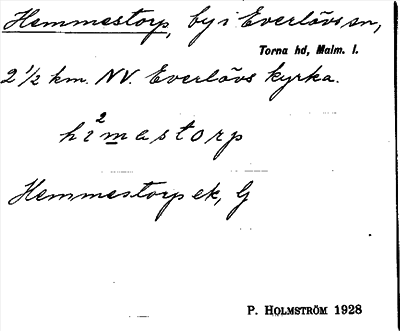 Hemmestorp, by i Everlövs sn,
Torna hd, Malm. l.
2 1/2 km. NV. Everlövs kyrka.
hi²mastorp
Hemmestorp ek, G
P. HOLMSTRÖM 1928